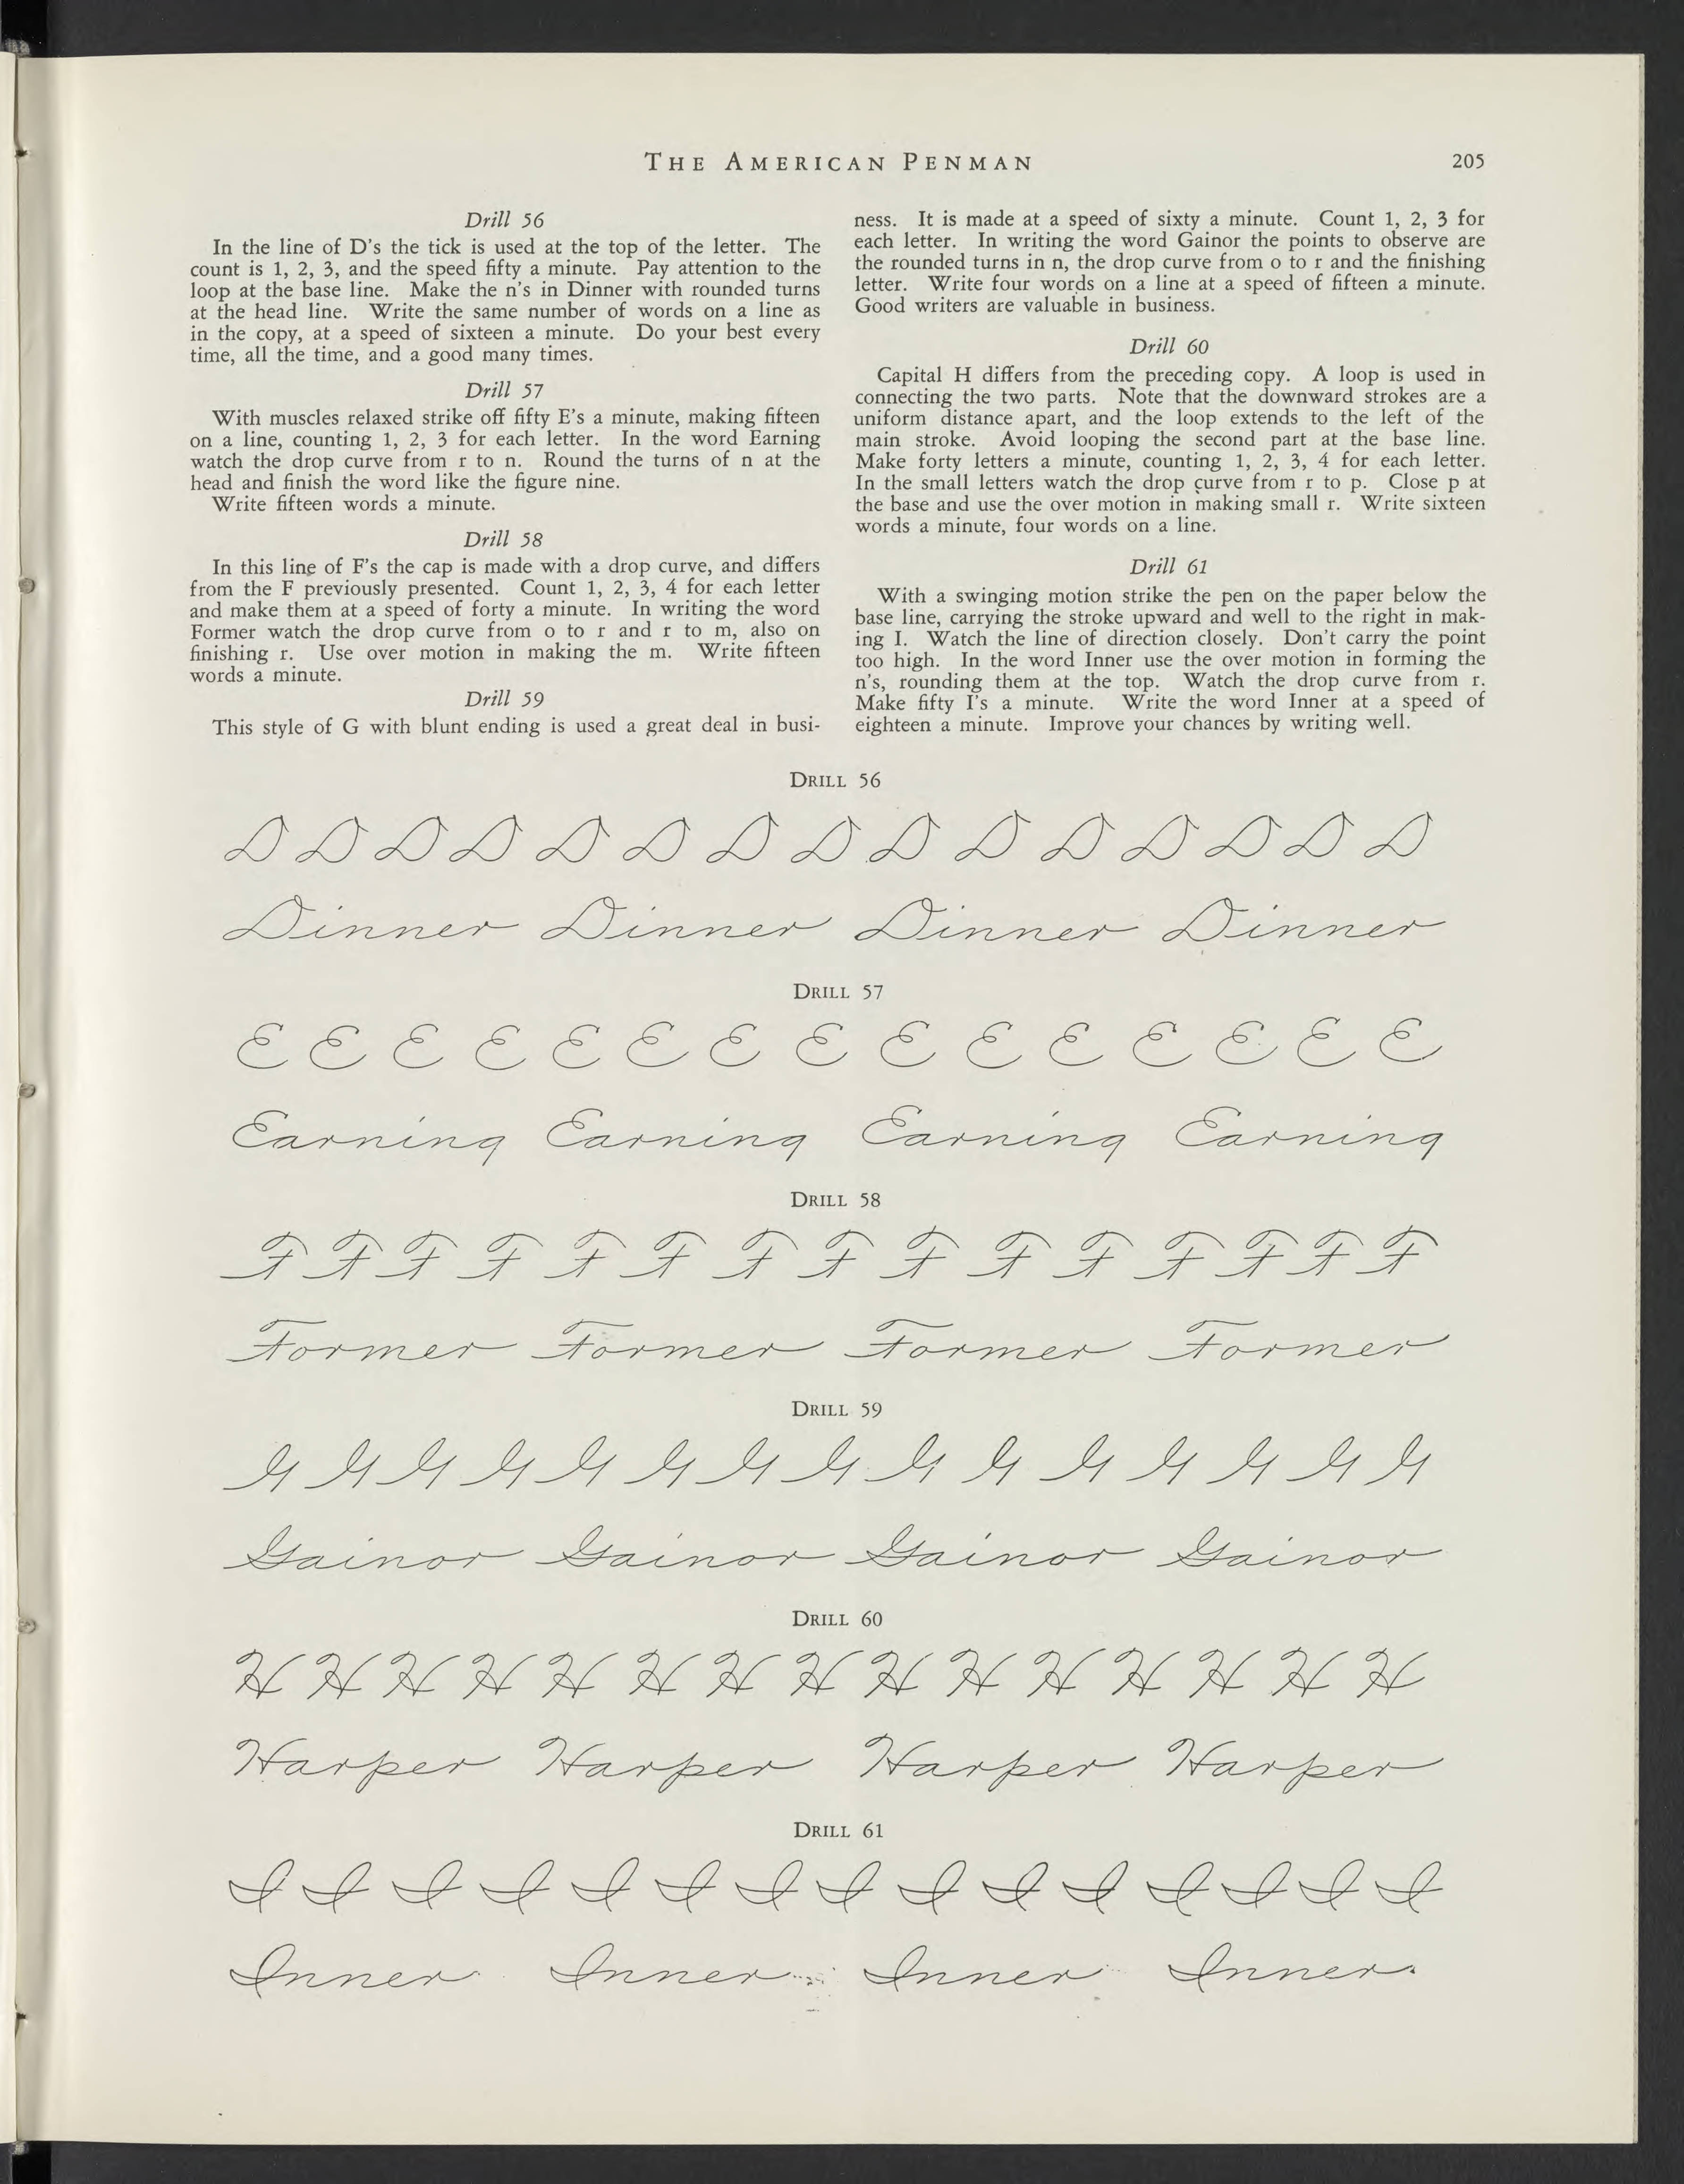 THE AMERICAN PENMAN 205
Drill 56
In the line of D's the tick is used at the top of the letter. The
count is 1, 2, 3, and the speed fifty a minute. Pay attention to the
loop at the base line. Make the n's in Dinner with rounded turns
at the head line. Write the same number of words on a line as
in the copy, at a speed of sixteen a minute. Do your best every
time, all the time, and a good many times.
Drill 57
With muscles relaxed strike off fifty E's a minute, making fifteen
on a line, counting 1, 2, 3 for each letter. In the word Earning
watch the drop curve from r to n. Round the turns of n at the
head and finish the word like the figure nine.
Write fifteen words a minute.
Drill 58
In this line of F's the cap is made with a drop curve, and differs
from the F previously presented. Count 1, 2, 3, 4 for each letter
and make them at a speed of forty a minute. In writing the word
Former watch the drop curve from o to r and r to m, also on
finishing r. Use over motion in making the m. Write fifteen
words a minute.
Drill 59
This style of G with blunt ending is used a great deal in busi-
ness. It is made at a speed of sixty a minute. Count 1, 2, 3 for
each letter. In writing the word Gainor the points to observe are
the rounded turns in n, the drop curve from o to r and the finishing
letter. Write four words on a line at a speed of fifteen a minute.
Good writers are valuable in business.
Drill 60
Capital H differs from the preceding copy. A loop is used in
connecting the two parts. Note that the downward strokes are a
uniform distance apart, and the loop extends to the left of the
main stroke. Avoid looping the second part at the base line.
Make forty letters a minute, counting 1, 2, 3, 4 for each letter.
In the small letters watch the drop curve from r to p. Close p at
the base and use the over motion in making small r. Write sixteen
words a minute, four words on a line.
Drill 61
With a swinging motion strike the pen on the paper below the
base line, carrying the stroke upward and well to the right in mak-
ing I. Watch the line of direction closely. Don't carry the point
too high. In the word Inner use the over motion in forming the
n's, rounding them at the top. Watch the drop curve from r.
Make fifty I's a minute. Write the word Inner at a speed of
eighteen a minute. Improve your chances by writing well.
DRILL 56
D D D D D D D D D D D D D D D
Dinner Dinner Dinner Dinner
DRILL 57
E E E E E E E E E E E E E E E
Earning Earning Earning Earning
DRILL 58
F F F F F F F F F F F F F F F
Former Former Former Former
DRILL 59
G G G G G G G G G G G G G G G
Gainor Gainor Gainor Gainor
DRILL 60
H H H H H H H H H H H H H H H
Harper Harper Harper Harper
DRILL 61
I I I I I I I I I I I I I I I
Inner Inner Inner Inner